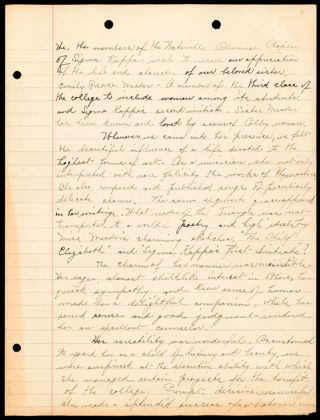 We, the members of the Waterville Alumnae Chapter
of Sigma Kappa wish to record our appreciation
of the life and character of our beloved sister,
Emily Peace Meader - A member of the third class of
the college to include women among its students,
and Sigma Kappa's second initiate, Sister Meader
has been known and loved by scores of Colby women.
Whenever we came into her presence, we felt
the beautiful influence of a life devoted to the
highest forms of art. As a musician, she not only
interpreted with rare felicity the works of the masters
She also composed and published songs of peculiarly
delicate charm. The same exquisite grace appeared
in her writings. What reader of the Triangle was not
transported to a world of poetry and high ideals by
Miss Meader's charming sketches, "The Chief
Elizabeth" and "Sigma Kappa's First Initiate"?
The charm of her manner was irresistible.
Her eager almost childlike interest in others, her
quick sympathy, and keen sense of humor
made her a delightful companion, while her
sound sense and good judgment rendered
her an excellent counselor.
Her versatility was wonderful. Accustomed
to regard her as a child of luxury and beauty, we
were surprised at the executive ability with which
she managed certain projects for the benefit
of the college. Prompt, decisive, resourceful
she made a splendid success